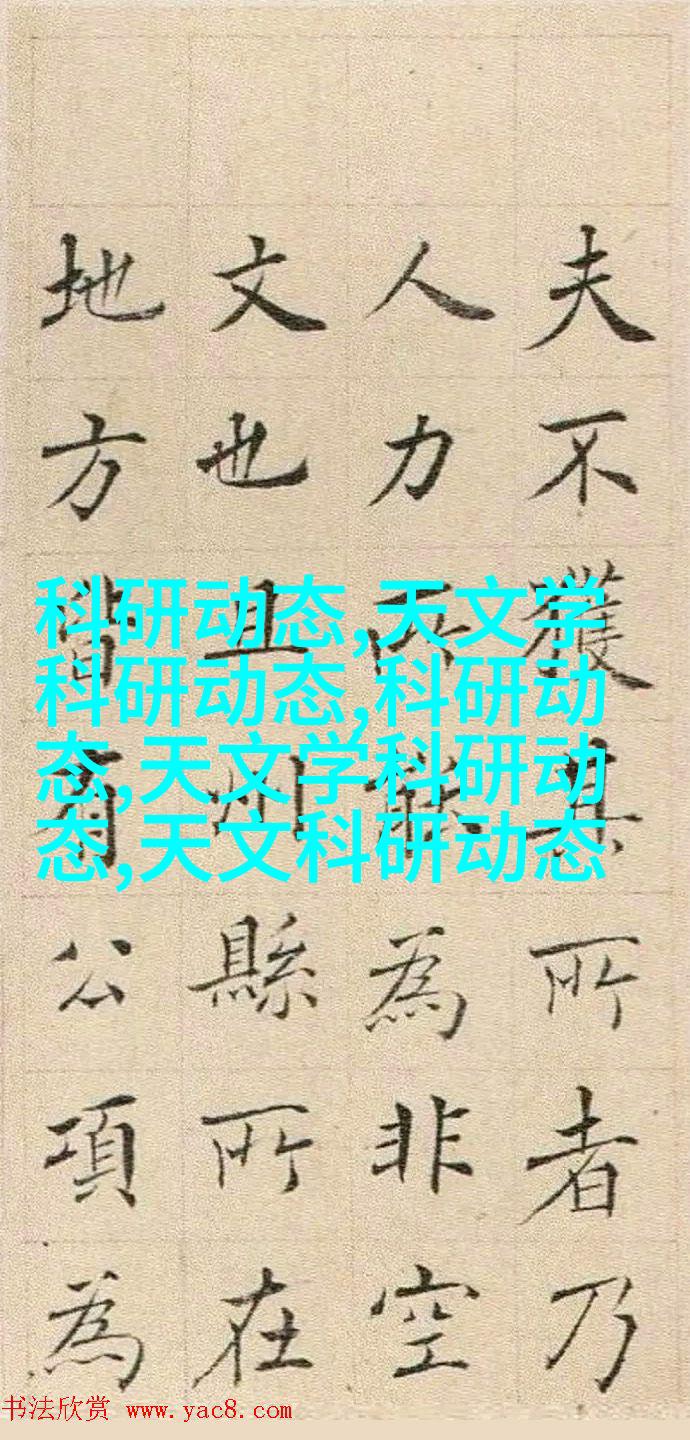 夫不獲其所者乃
人力所能為非空
文也且州縣所在
地方皆有公項為
科研动态,天文学
科研动态,科研动
态,天文学科研动
态,天文科研动态
书法欣赏 www.yac8.com